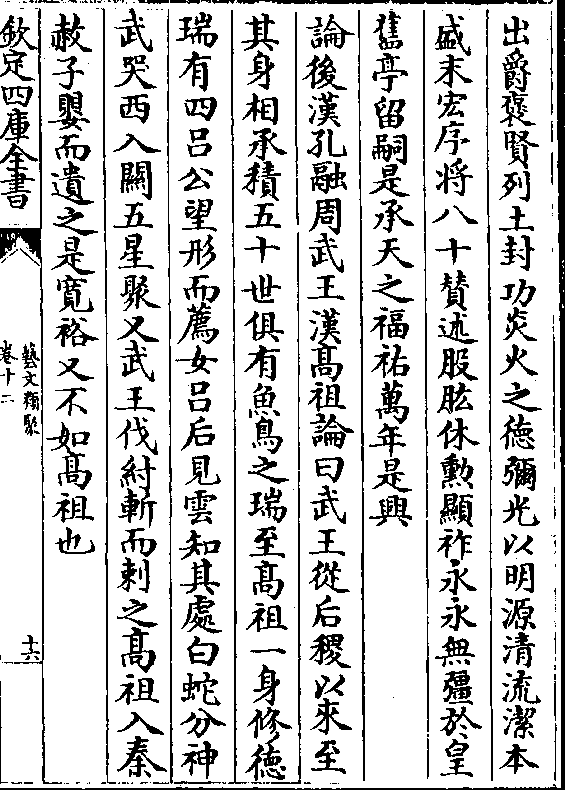 出爵褒賢列土封功炎火之徳彌光以明源清流潔本
盛末宏序将八十賛述股肱休勲顯祚永永無彊於皇
舊亭留嗣是承天之福祐萬年是興
論後漢孔融周武王漢髙祖論曰武王從后稷以來至
其身相承積五十世俱有魚鳥之瑞至髙祖一身修徳
瑞有四吕公望形而薦女吕后見雲知其處白蛇分神
武哭西入關五星聚又武王伐紂斬而刺之髙祖入秦
赦子嬰而遣之是寛裕又不如髙祖也
欽定四庫全書
藝文類聚
卷十二
十六